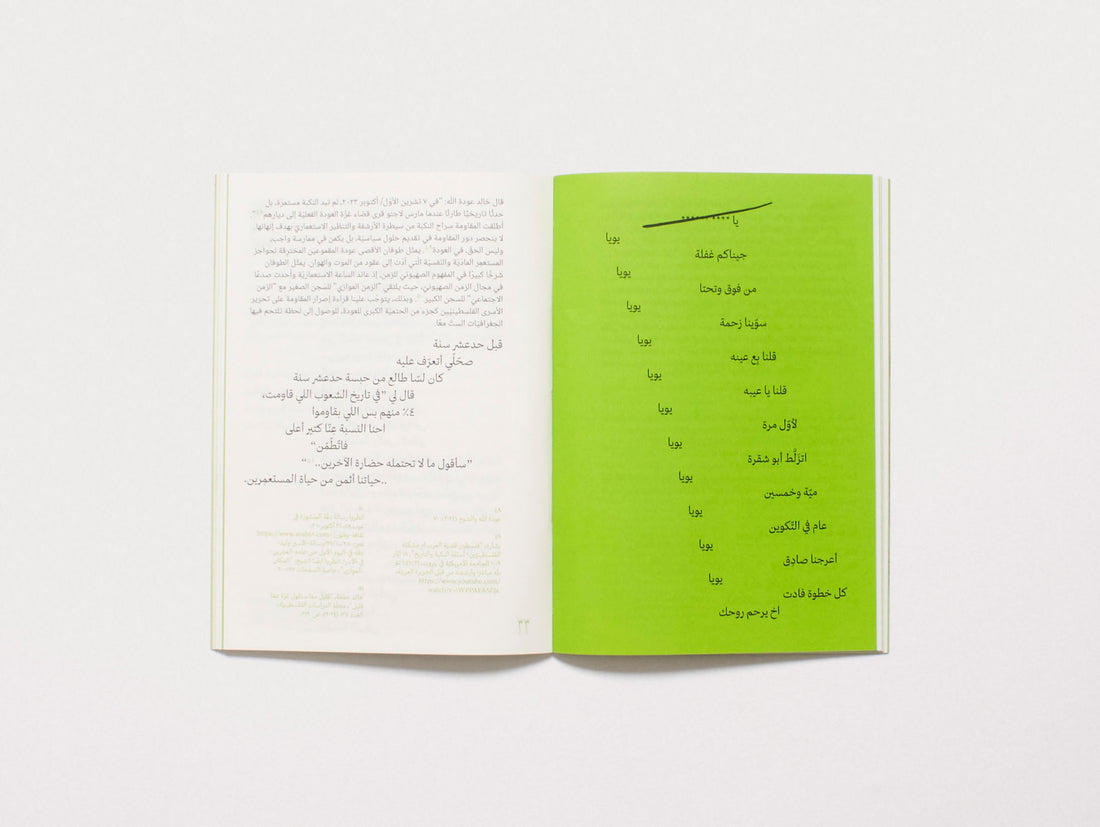 يا **** ******
يويا
جيناكم غفلة
يويا
من فوق وتحتا
يويا
سوّينا زحمة
يويا
قلنا بِع عينه
يويا
قلنا يا عيبه
يويا
لأوّل مرة
يويا
اتزلَّط أبو شقرة
يويا
ميّة وخمسين
يويا
عام في التّكوين
يويا
أعرجنا صادِق
يويا
كل خطوة فادت
اخ يرحم روحك
قال خالد عودة الله: "في ٧ تشرين الأول/ أكتوبر ٢٠٢٣، لم تبد النكبة مستمرّة، بل
حدثًا تاريخيًا طارئًا عندما مارس لاجئو قرى قضاء غزّة العودة الفعليّة إلى ديارهم".
أطلقت المقاومة سراح النكبة من سيطرة الأرشفة والتنظير الاستعماريّ بهدف إنهائها.
لا ينحصر دور المقاومة في تقديم حلول سياسيّة، بل يكمن في ممارسة واجب،
وليس الحقّ، في العودة. يمثل طوفان الأقصى عودة المقموعين المخترقة لحواجز
المستعمر الماديّة والنفسيّة التي أدت إلى عقود من الموت والهوان. يمثل الطوفان
شرخًا كبيرًا في المفهوم الصهيوني للزمن، إذ عاند الساعة الاستعماريّة وأحدث صدعًا
في مجال الزمن الصهيوني، حيث يلتقي "الزمن الموازي" للسجن الصغير مع "الزمن
الاجتماعي" للسجن الكبير. وبذلك، يتوجب علينا قراءة إصرار المقاومة على تحرير
الأسرى الفلسطينيّين كجزء من الحتمية الكبرى للعودة، للوصول إلى لحظة تلتحم فيها
الجغرافيّات الستّ معًا.
قبل حدعشر سنة
صحّلّي أتعرّف عليه
كان لسّا طالع من حبسة حدعشر سنة
قال لي "في تاريخ الشعوب اللي قاومت،
٤٪ منهم بس اللي بقاوموا
احنا النسبة عِنّا كتير أعلى
فاتّطّمّن"
"سأقول ما لا تحتمله حضارة الآخرين..
..حياتنا أثمن من حياة المستعمِرين."
٤٨
٤٩
https://www.youtube.com/
٣٣